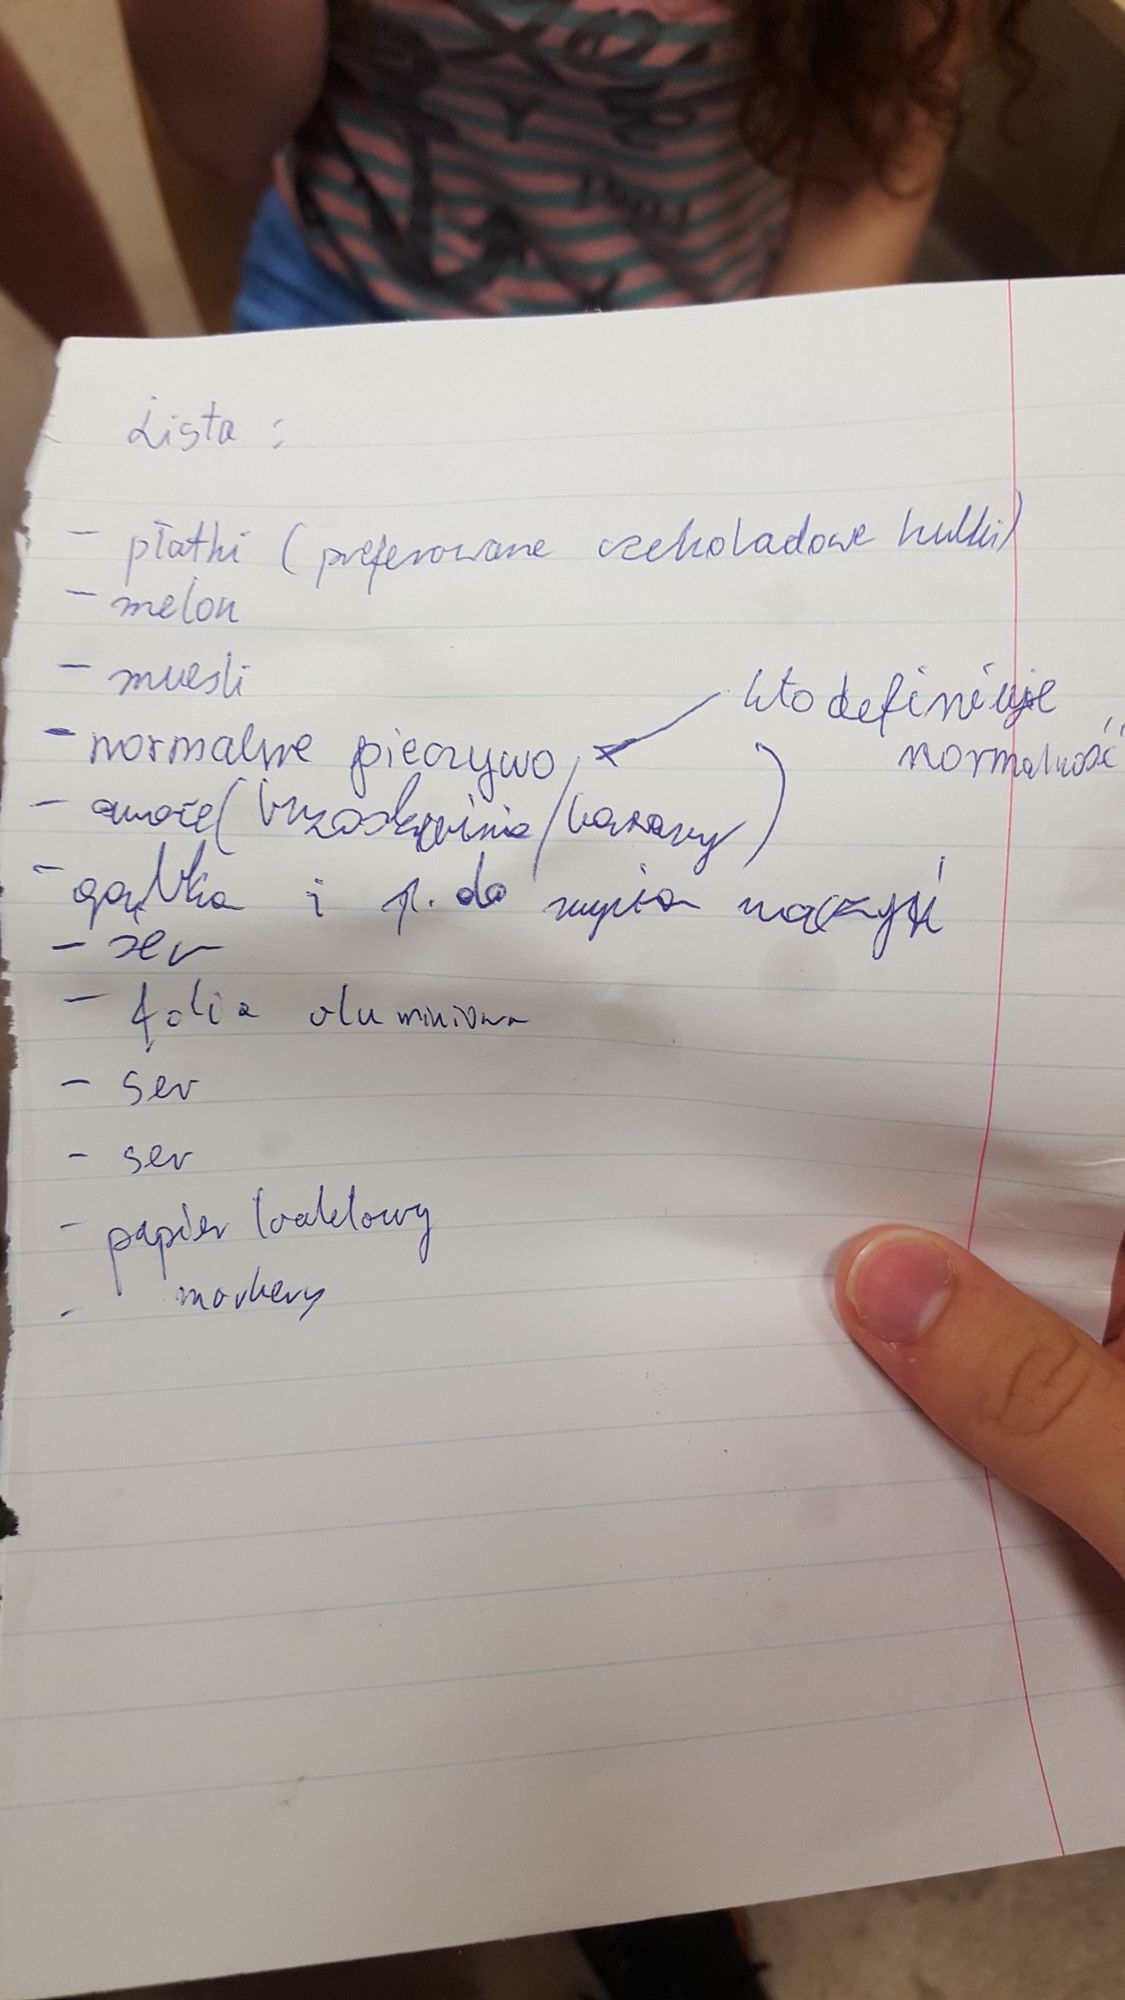 Lista :
- płatki (preferowane czekoladowe kulki)
- melon
- muesli
- normalne pieczywo
kto definiuje
normalność
- owoce (brzoskwinie/banany)
- gąbka i pł. do mycia naczyń
- ser
- folia aluminiowa
- ser
- ser
- papier toaletowy
- markery